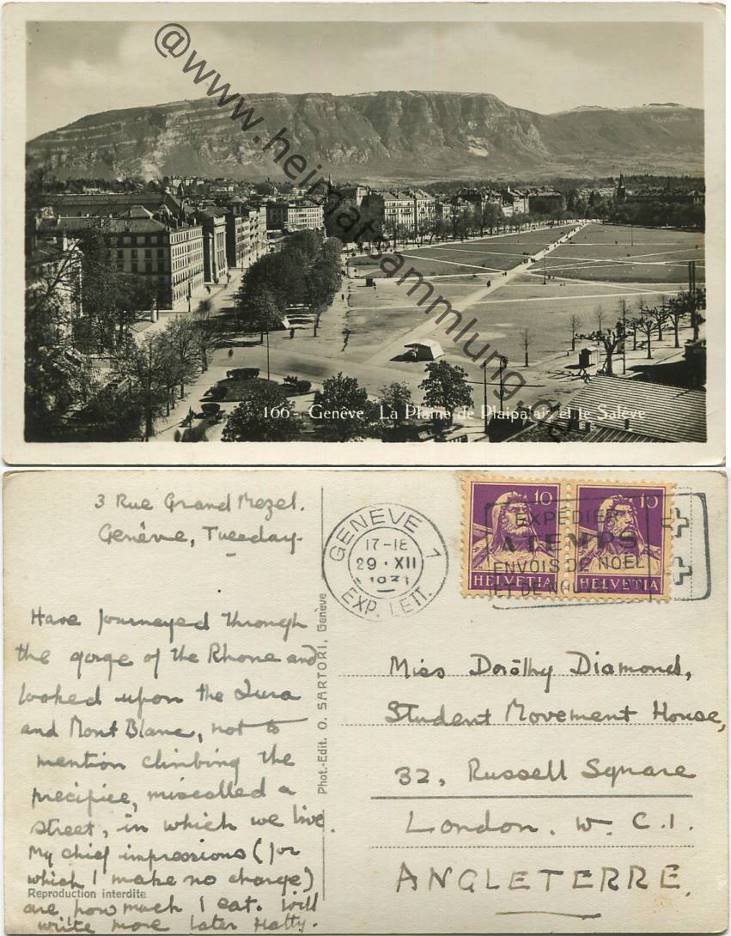 @www.heimatsammlung.de
166 - Genève. La Plaine de Plaipalaiz et le Salève
3 Rue Grand Mezel.
Genève, Tuesday
GENÈVE 1
17-18
29·XII
1931
EXP. LETT.
10 10
HELVETIA HELVETIA
EXPÉDIER
A TEMPS
ENVOIS DE NOËL
ET DE
Have journeyed through
the gorge of the Rhone and
looked upon the Jura
and Mont Blanc, not to
mention climbing the
precipice, miscalled a
street, in which we live.
My chief impressions (for
which I make no charge)
are how much I eat. Will
write more later Hatty.
Reproduction interdite
Phot.-Edit. O. SARTORI, Genève
Miss Dorothy Diamond,
Student Movement House,
32, Russell Square
London. W. C. 1.
ANGLETERRE.